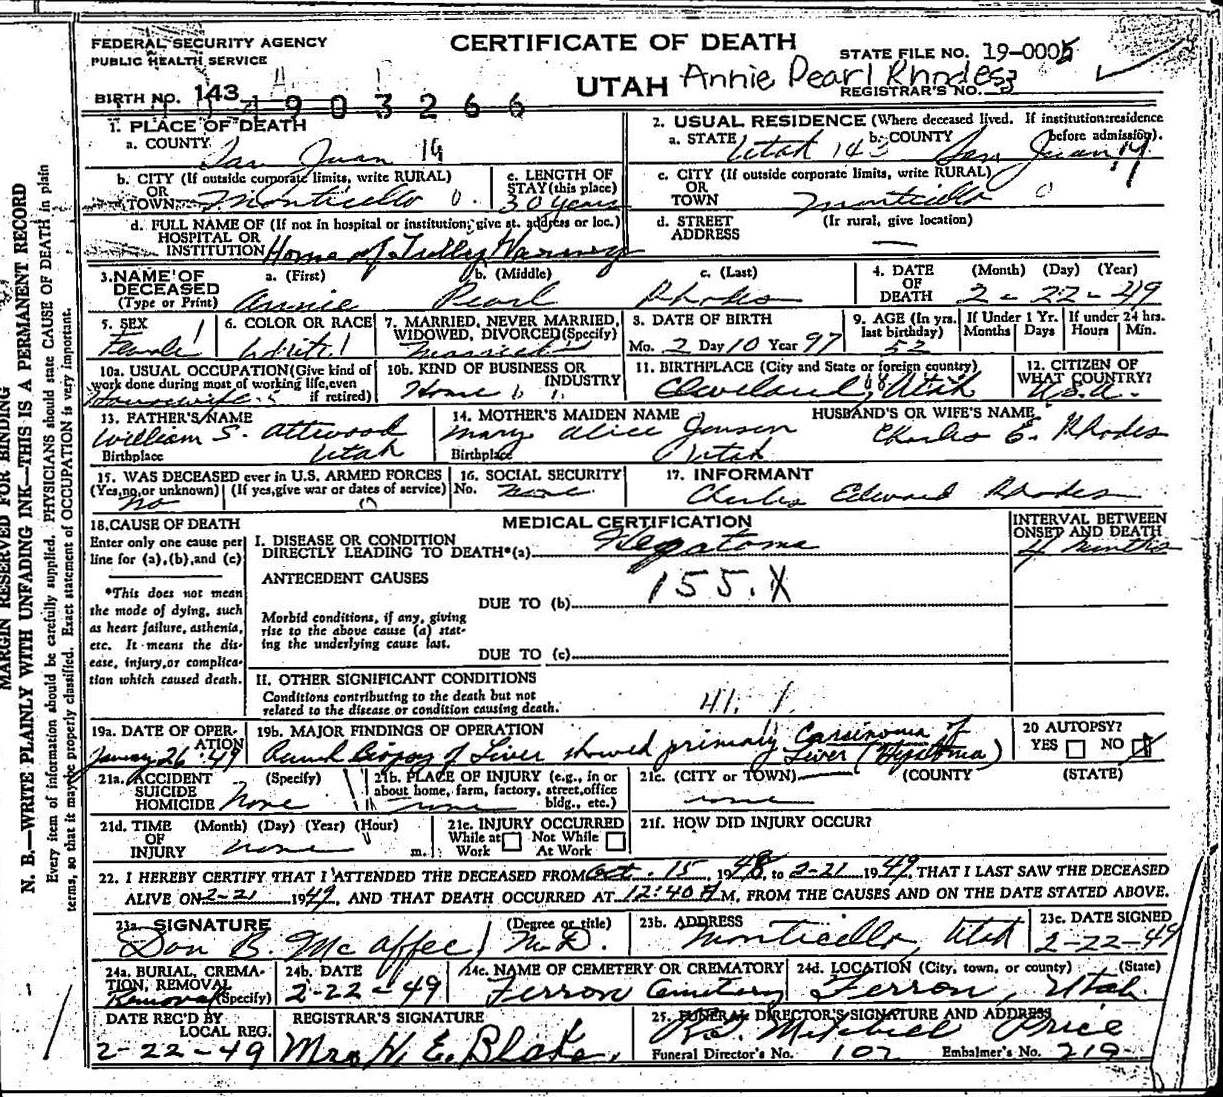 FEDERAL SECURITY AGENCY
PUBLIC HEALTH SERVICE
CERTIFICATE OF DEATH
STATE FILE NO. 19-0005
UTAH Annie Pearl Rhodes
REGISTRAR'S NO. 3
BIRTH NO. 143
4903266
1. PLACE OF DEATH
a. COUNTY San Juan 19
2. USUAL RESIDENCE (Where deceased lived. If institution: residence before admission).
a. STATE Utah 143 b. COUNTY San Juan 19
b. CITY (If outside corporate limits, write RURAL)
OR TOWN Monticello 0.
c. LENGTH OF STAY (this place)
30 years
c. CITY (If outside corporate limits, write RURAL)
OR TOWN Monticello 0
d. FULL NAME OF (If not in hospital or institution, give st. address or loc.)
HOSPITAL OR INSTITUTION Home of
d. STREET ADDRESS (If rural, give location) —
3. NAME OF DECEASED (Type or Print)
a. (First) b. (Middle) c. (Last)
Annie Pearl Rhodes
4. DATE OF DEATH (Month) (Day) (Year)
2-22-49
5. SEX
Female 1
6. COLOR OR RACE
White 1
7. MARRIED, NEVER MARRIED, WIDOWED, DIVORCED (Specify)
Married
8. DATE OF BIRTH
Mo. 2 Day 10 Year 97
9. AGE (In yrs. last birthday)
52
If Under 1 Yr. Months Days
If under 24 hrs. Hours Min.
10a. USUAL OCCUPATION (Give kind of work done during most of working life, even if retired)
Housewife
10b. KIND OF BUSINESS OR INDUSTRY
Home
11. BIRTHPLACE (City and State or foreign country)
Cleveland, Utah
12. CITIZEN OF WHAT COUNTRY?
U.S.A.
13. FATHER'S NAME
William S. Attwood
Birthplace Utah
14. MOTHER'S MAIDEN NAME
Mary Alice Jensen
Birthplace Utah
HUSBAND'S OR WIFE'S NAME
Charles E. Rhodes
15. WAS DECEASED ever in U.S. ARMED FORCES
(Yes, no, or unknown) (If yes, give war or dates of service)
No 0
16. SOCIAL SECURITY No. None
17. INFORMANT
Charles Edward Rhodes
18. CAUSE OF DEATH
Enter only one cause per line for (a), (b), and (c)
*This does not mean the mode of dying, such as heart failure, asthenia, etc. It means the disease, injury, or complication which caused death.
MEDICAL CERTIFICATION
INTERVAL BETWEEN ONSET AND DEATH
I. DISEASE OR CONDITION
DIRECTLY LEADING TO DEATH*(a) Hepatoma
4 months
ANTECEDENT CAUSES
155.X
DUE TO (b)
Morbid conditions, if any, giving rise to the above cause (a) stating the underlying cause last.
DUE TO (c)
II. OTHER SIGNIFICANT CONDITIONS
Conditions contributing to the death but not related to the disease or condition causing death.
41. 1
19a. DATE OF OPERATION
January 26 '49
19b. MAJOR FINDINGS OF OPERATION
Biopsy of Liver showed primary Carsinoma of Liver (Hepatoma)
20 AUTOPSY?
YES NO X
21a. ACCIDENT SUICIDE HOMICIDE (Specify)
None
21b. PLACE OF INJURY (e.g., in or about home, farm, factory, street, office bldg., etc.)
none
21c. (CITY or TOWN) (COUNTY) (STATE)
none
21d. TIME OF INJURY (Month) (Day) (Year) (Hour)
none m.
21e. INJURY OCCURRED
While at Work Not While At Work
21f. HOW DID INJURY OCCUR?
22. I HEREBY CERTIFY THAT I ATTENDED THE DECEASED FROM Oct. 15, 1948, to 2-21 1949, THAT I LAST SAW THE DECEASED
ALIVE ON 2-21 1949, AND THAT DEATH OCCURRED AT 12:40 A M, FROM THE CAUSES AND ON THE DATE STATED ABOVE.
23a. SIGNATURE (Degree or title)
Don B. McAffee, M.D.
23b. ADDRESS
Monticello, Utah
23c. DATE SIGNED
2-22-49
24a. BURIAL, CREMATION, REMOVAL (Specify)
Removal
24b. DATE
2-22-49
24c. NAME OF CEMETERY OR CREMATORY
Ferron Cemetery
24d. LOCATION (City, town, or county) (State)
Ferron, Utah
DATE REC'D BY LOCAL REG.
2-22-49
REGISTRAR'S SIGNATURE
Mrs. H. E. Blake,
25. FUNERAL DIRECTOR'S SIGNATURE AND ADDRESS
Mitchell Price
Funeral Director's No. 107 Embalmer's No. 219
MARGIN RESERVED FOR BINDING
N. B.—WRITE PLAINLY WITH UNFADING INK—THIS IS A PERMANENT RECORD
Every item of information should be carefully supplied. PHYSICIANS should state CAUSE OF DEATH in plain
terms, so that it may be properly classified. Exact statement of OCCUPATION is very important.